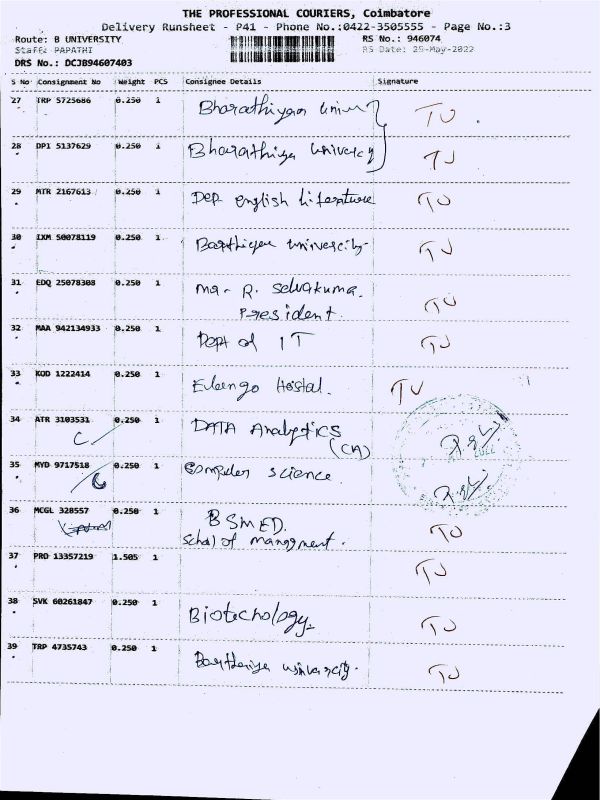 THE PROFESSIONAL COURIERS, Coimbatore
Delivery Runsheet - P41 - Phone No.:0422-3505555 - Page No.:3
Route: B UNIVERSITY RS No.: 946074
Staff: PAPATHI RS Date: 25-May-2022
DRS No.: DCJB94607403
S No Consignment No Weight PCS Consignee Details Signature
27 TRP 5725686 0.250 1 Bharathiyar TU
28 DP1 5137629 0.250 1 Bharathiya TU
29 MTR 2167613 0.250 1 Dep english literature TU
30 IXM 50078119 0.250 1 TU
31 EDQ 25078308 0.250 1 Mr. R. Selvakuma. TU
President.
32 MAA 942134933 0.250 1 Dept of IT TU
33 KOD 1222414 0.250 1 Hostal. TU
34 ATR 3103531 0.250 1 DATA Analytics
C (CA)
35 MYD 9717518 0.250 1 Computer science
36 MCGL 328557 0.250 1 BSMED. TU
School of mangment.
37 PRO 13357219 1.505 1 TU
38 SVK 60261847 0.250 1 Biotechology TU
39 TRP 4735743 0.250 1 TU